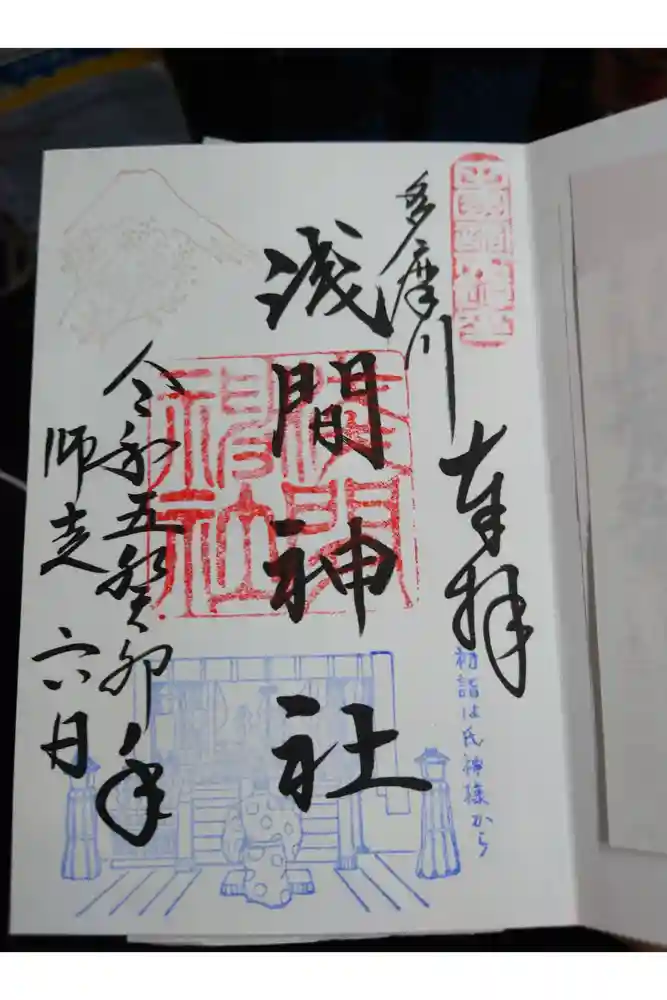 奉拝
初詣は氏神様から
多摩川
浅間神社
浅間神社
令和五癸卯年
師走 六日